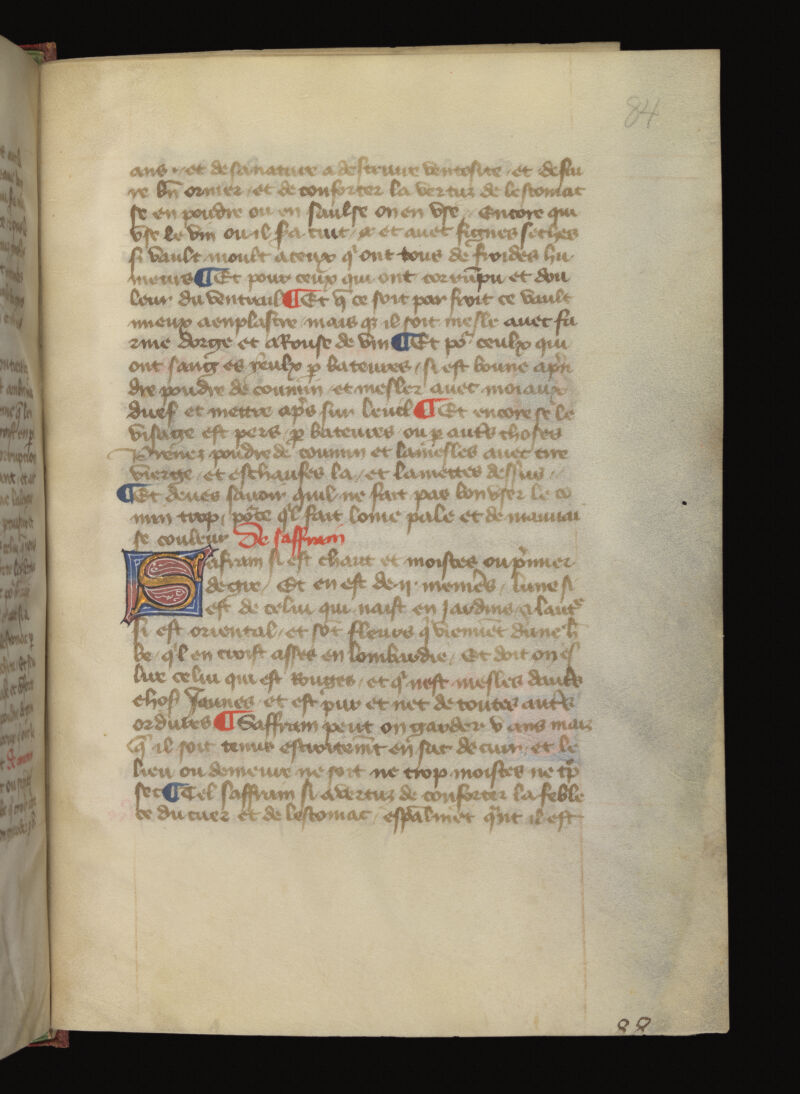 84
ans · et de sa nature a destruire ventosite / et de fai
re bn̄ oriner / et de conforter la vertuz de lestomac
se en poudre ou en saulse on en vse / Encore qui
vse le vin ou il soit cuit / et avec fignes seches
si vault moult a ceux q̄ ont tous de froides hu
meurs ¶ Et pour ceux qui ont corrūpu et dou
leur du ventrail ¶ Et q̄ ce soit par froit ce vault
mieux a enplastre / mais q̄ il soit mesle avec fa
rine dorge et arouse de vin ¶ Et po᷑ ceulx qui
ont sang es yeulx p̱ bateures / si est bonne a pn̄
dre poudre de commin / et mesler avec moiaux
duef et mettre ap̄s sur leuil ¶ Et encore se le
visage est pers / p̱ bateures ou p̱ aut᷑s choses
Prenez poudre de coumin et la mesles avec cire
vierge / et eschaufes la / et la mettes dessus /
¶ Et deues sauoir quil ne fait pas bon vser le co
min trop / po᷑ce q̄l fait lome pale et de mauuai
se couleur De saffram
Safram si est chaut et moistes ou p̄mier
degre / Et en est de .ij. menieres / lune si
est de celui qui naist en Jardins / a laut᷑
si est oriental / et sōt fleurs q̄ viennēt dune h̄
be / q̄l en croist asses en lombardie / Et doit on es
lire celui qui est Rouges / et q̄ nest mesles daut᷑s
choses Jaunes / et est pur et net de toutes aut᷑s
ordures ¶ Saffram peut on garder v ans mais
q̄ il soit tenus estroitemt̄ en sac de cuir / et le
lieu ou demeure ne soit ne trop moistes ne tp̄
sec ¶ Tel saffram si a vertuz de conforter la feble
ce du cuer et de lestomac / esp̄alment q̄nt il est
88